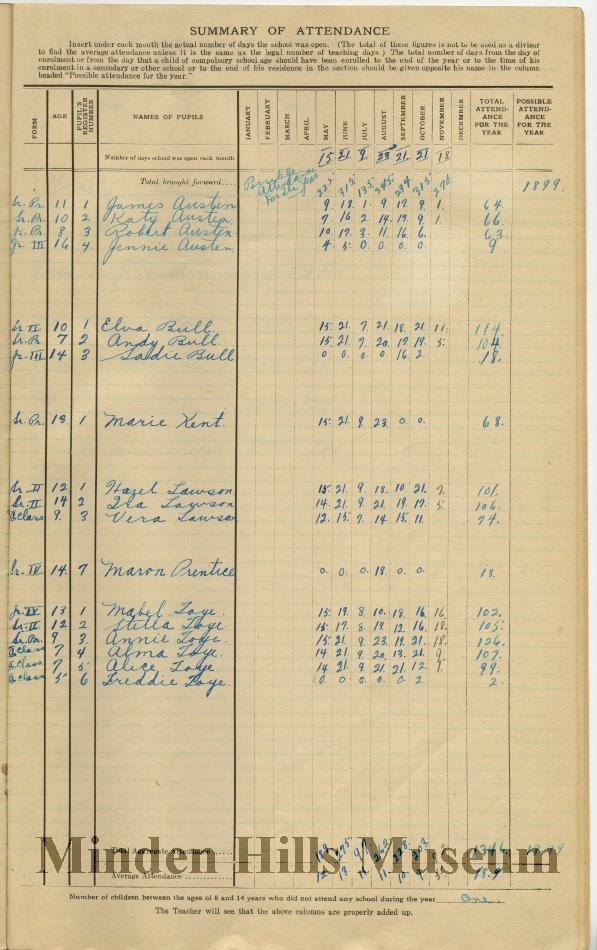 SUMMARY OF ATTENDANCE
Insert under each month the actual number of days the school was open. (The total of these figures is not to be used as a divisor
to find the average attendance unless it is the same as the legal number of teaching days.) The total number of days from the day of
enrolment or from the day that a child of compulsory school age should have been enrolled to the end of the year or to the time of his
enrolment in a secondary or other school or to the end of his residence in the section should be given opposite his name in the column
headed "Possible attendance for the year."
FORM AGE PUPIL'S REGISTER NUMBER NAMES OF PUPILS JANUARY FEBRUARY MARCH APRIL MAY JUNE JULY AUGUST SEPTEMBER OCTOBER NOVEMBER DECEMBER TOTAL ATTENDANCE FOR THE YEAR POSSIBLE ATTENDANCE FOR THE YEAR
Number of days school was open each month 15. 21. 9. 23. 21. 21 18.
Total brought forward.... Possible Attendance For the Year 225. 315. 135. 345. 294. 315. 270. 1899.
Sr. Pr. 11 1 James Austen 9. 18. 1. 9. 17. 9. 1. 64.
Sr. Pr. 10 2 Katy Austen 7. 16. 2. 14. 19. 9 1. 66.
Jr. Pr. 8 3 Robert Austen 10. 17. 3. 11. 16. 6. 63.
Jr. III 16 4. Jennie Austen 4. 5. 0. 0. 0. 0. 9
Sr. II 10 1 Elva Bull. 15. 21. 7. 21. 18. 21. 11. 114.
Sr. Pr. 7 2. Andy Bull. 15. 21. 7. 20. 17. 19. 5. 104.
Jr. III 14 3 Sadie Bull 0. 0. 0. 0. 16. 2. 18.
Sr. Pr. 13. 1 Marie Kent. 15. 21. 9. 23. 0. 0. 68.
Sr. II 12 1 Hazel Lawson 15. 21. 9. 18. 10. 21. 7. 101.
Sr. II 14 2 Ira Lawson 14. 21. 9. 21. 19. 17. 5. 106.
Class 9. 3 Vera Lawson 12. 15. 7. 14. 15. 11. 74.
Sr. IV 14. 7 Maron Prentice 0. 0. 0. 18. 0. 0. 18.
Jr. IV 13 1 Mabel Toye. 15. 19. 8. 10. 18. 16. 16. 102.
Sr. II 12 2 Stella Toye. 15. 17. 8. 19. 12. 16. 18. 105.
Sr. Pr. 9 3. Annie Toye. 15. 21. 9. 23. 19. 21. 18. 126.
Class 7 4 Alma Toye. 14. 21. 9. 20. 13. 21. 9. 107.
Class 7 5. Alice Toye. 14. 21. 9. 21. 21. 12. 1. 99.
Class 5 6 Freddie Toye. 0. 0. 0. 0. 0. 2. 2.
Total Aggregate Attendance
Average Attendance
Minden Hills Museum
Number of children between the ages of 8 and 14 years who did not attend any school during the year One.
The Teacher will see that the above columns are properly added up.